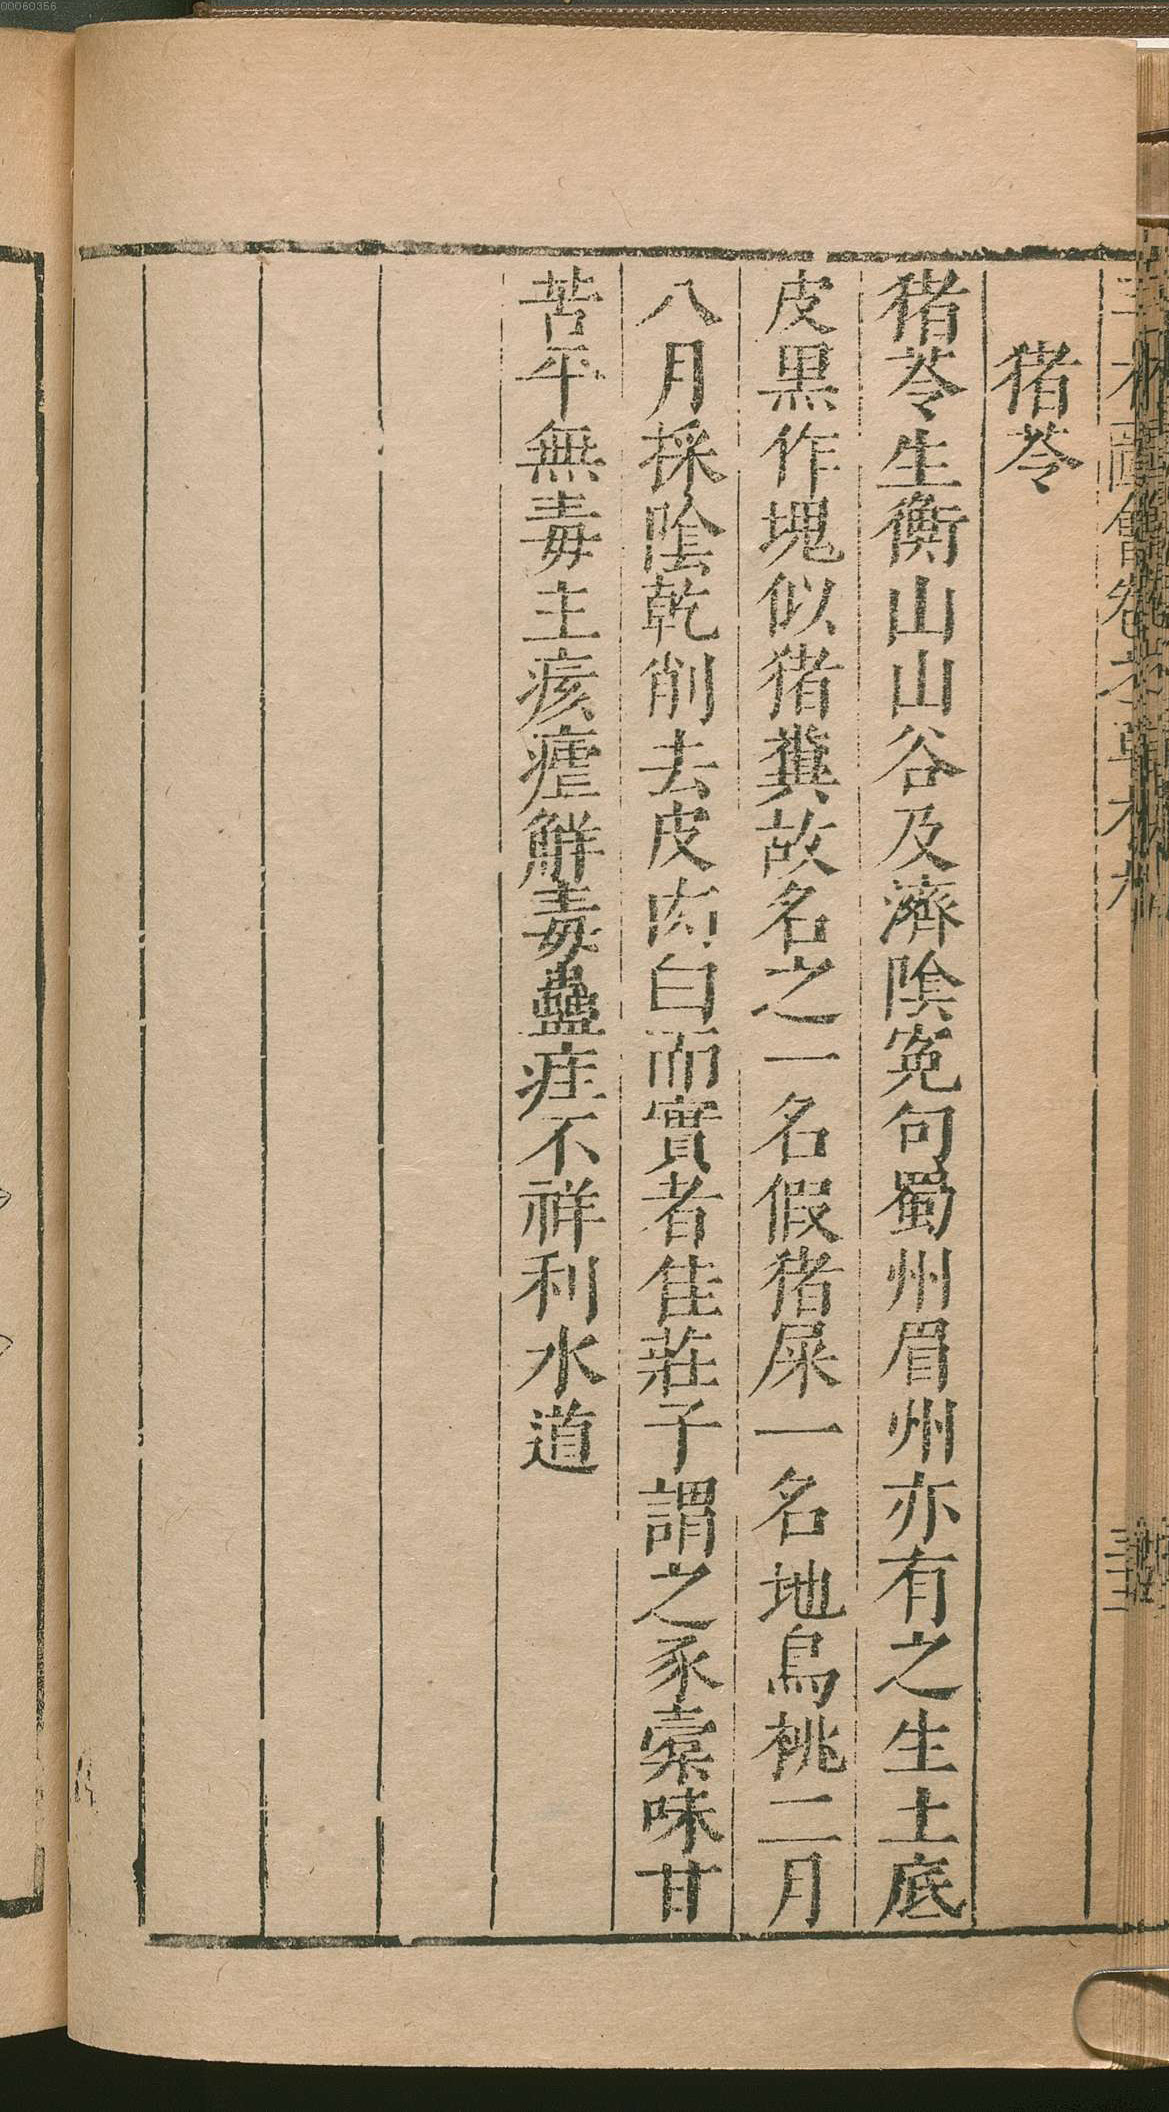 00060356
猪苓
猪苓生衡山山谷及濟陰冤句蜀州眉州亦有之生土底
皮黒作塊似猪糞故名之一名假猪屎一名地烏桃二月
八月採陰乾削去皮肉白而實者佳莊子謂之豕橐味甘
苦平無毒主痎瘧解毒蠱疰不祥利水道